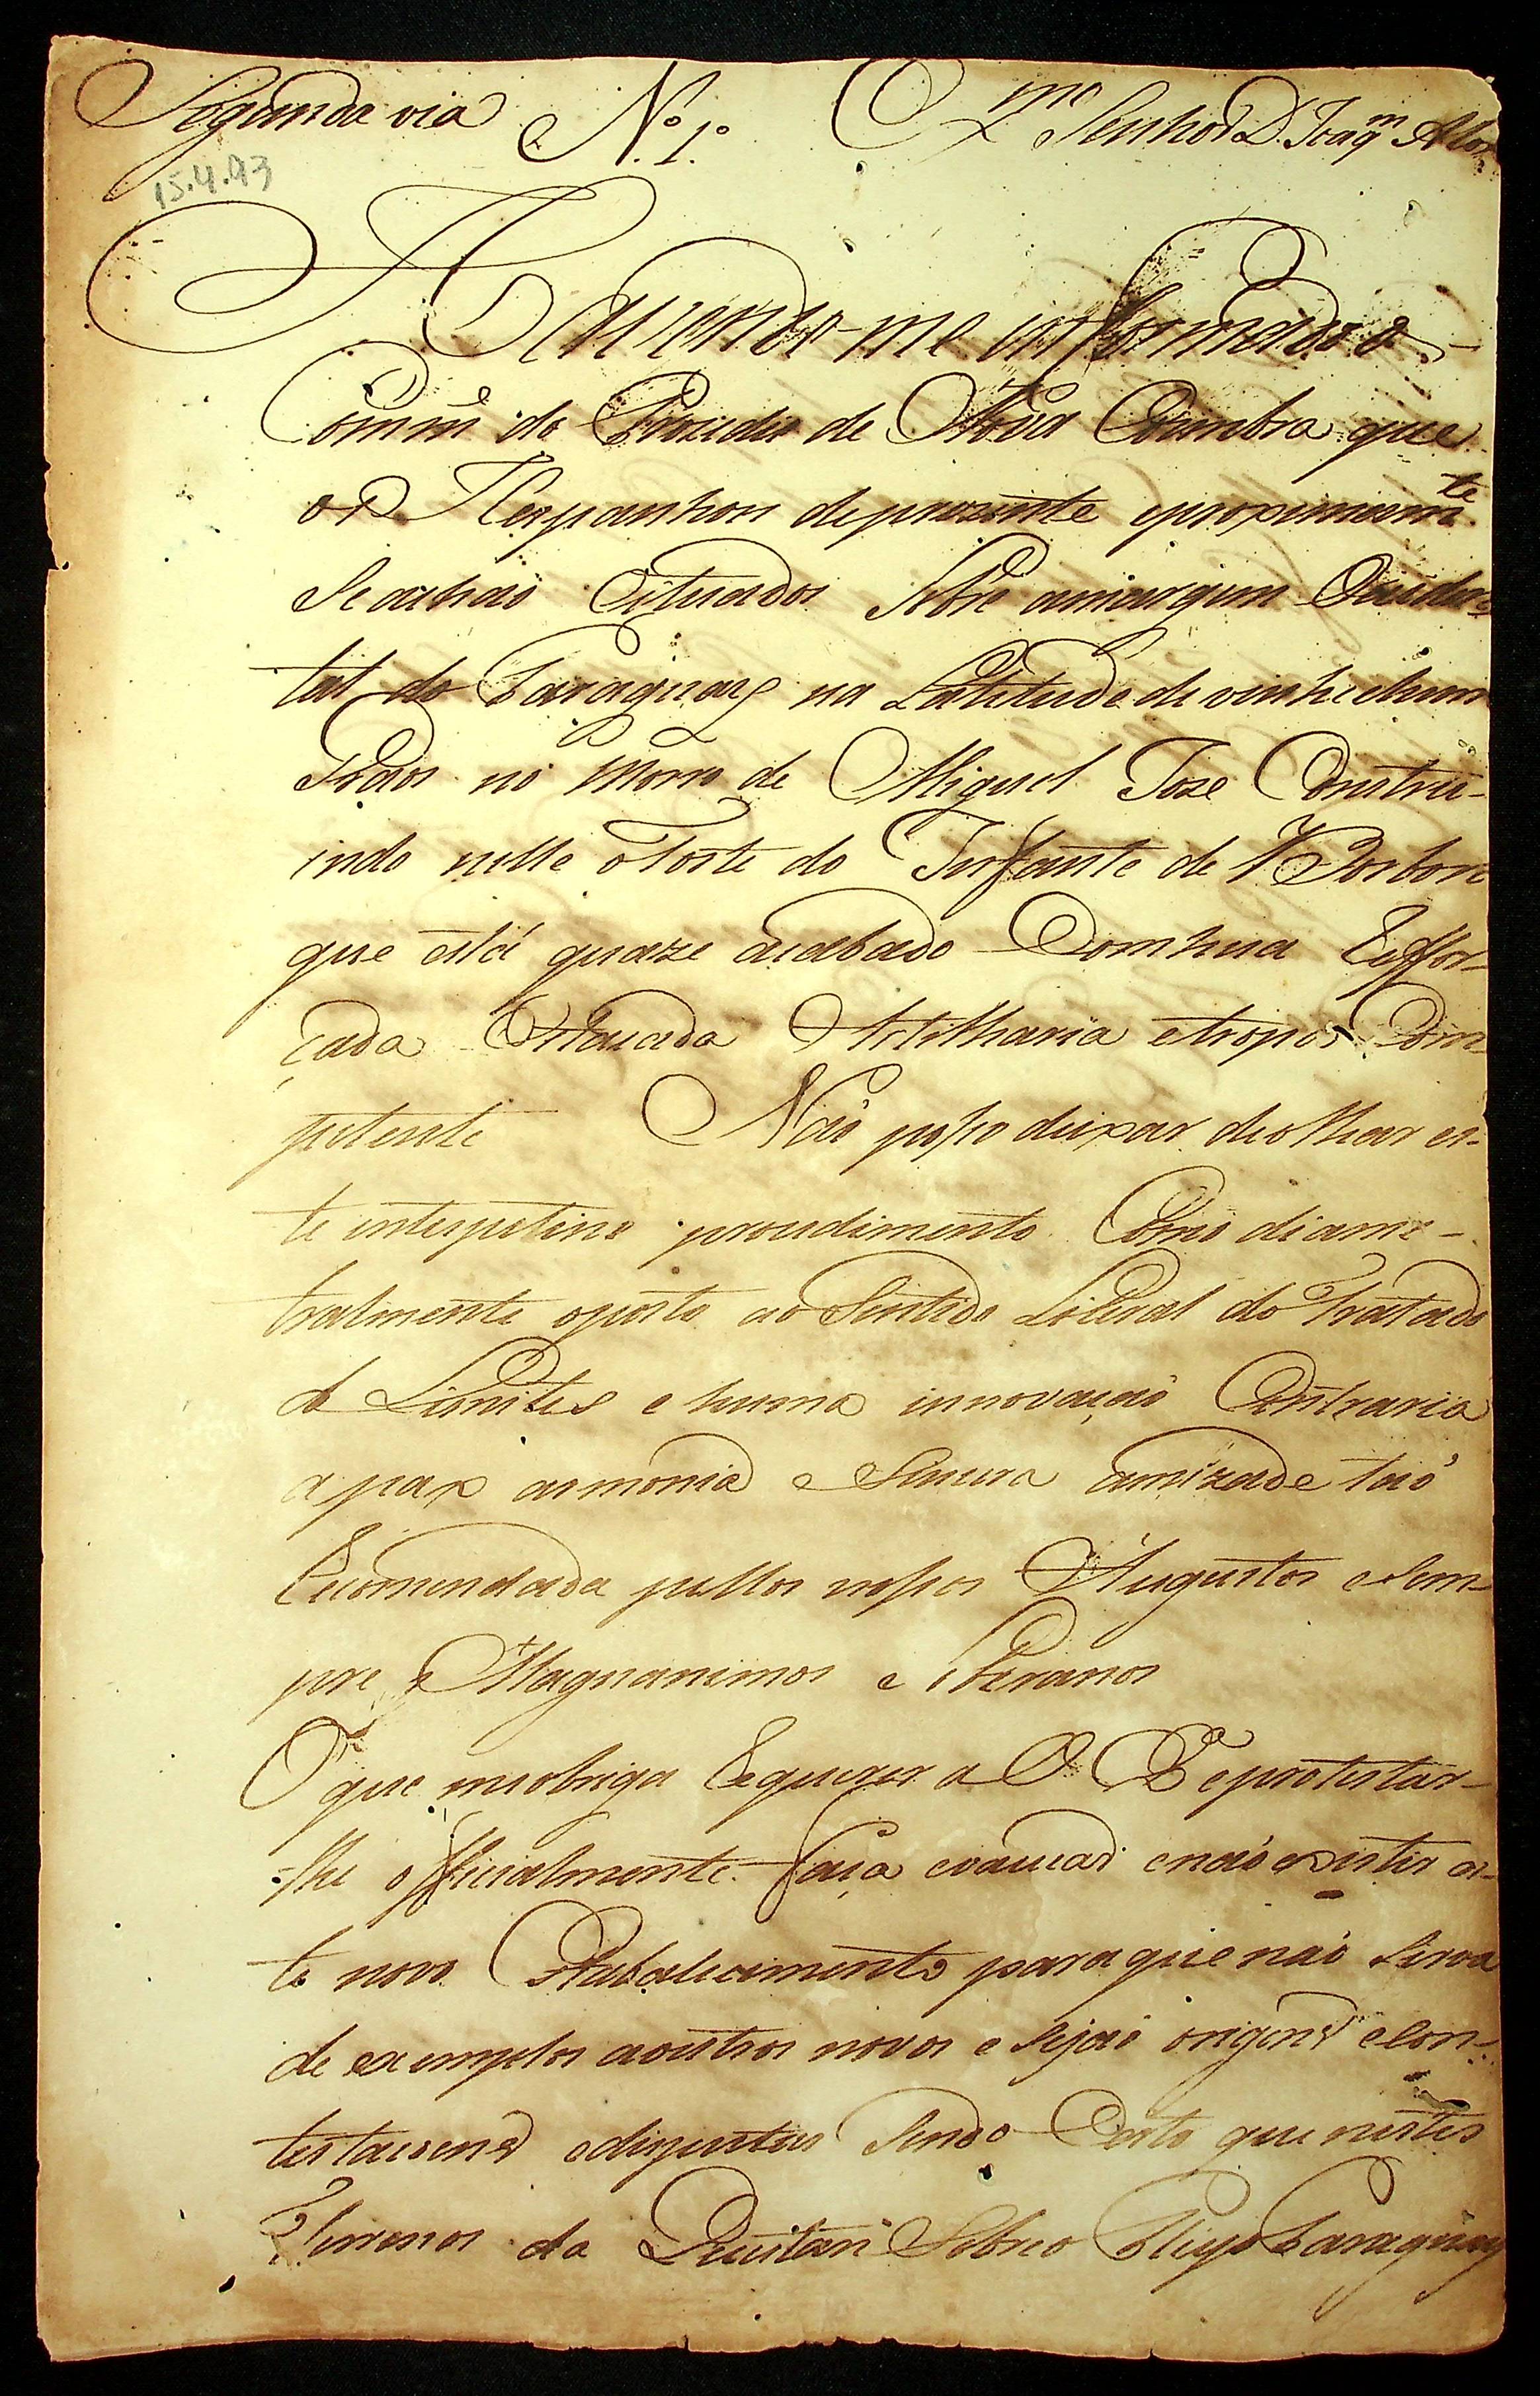 Segunda via N.º 1.º Exmo Senhor D. Joaqm Alos
15.4.93
Havendo-me informado o
Comme do Prezidio de Nova Coimbra que
os Hespanhoes de prezente e proximamte
se achaõ Cituados sobre a margem Occiden-
tal do Paraguay na Latitude de vinte e hum
Graos no Morro de Miguel Joze Constru-
indo nelle o Forte do Infante de Borbon
que está quaze acabado Com hua Reffor-
çada Estacada Artilharia e tropas Com-
petente Naõ posso deixar de olhar es-
te intespetivo procedimento Como diame-
tralmente oposto ao Sentido Literal do Tratado
de Limites e huma innovaçaõ Contraria
a pax armonia e Sincera amizade taõ
Recomendada pellos nossos Augustos e sem-
pre Magnanimos e Soberanos
O que me obriga Requerer a V E e protestar-
lhe officialmente faça evacuar e naõ existir es-
te novo Estabelecimento para que naõ sirva
de exemplos a outros novos e sejaõ origens e Con-
testacoens e disputas Sendo Certo que nestes
Terrenos da Questaõ Sobre o Rio Paraguay